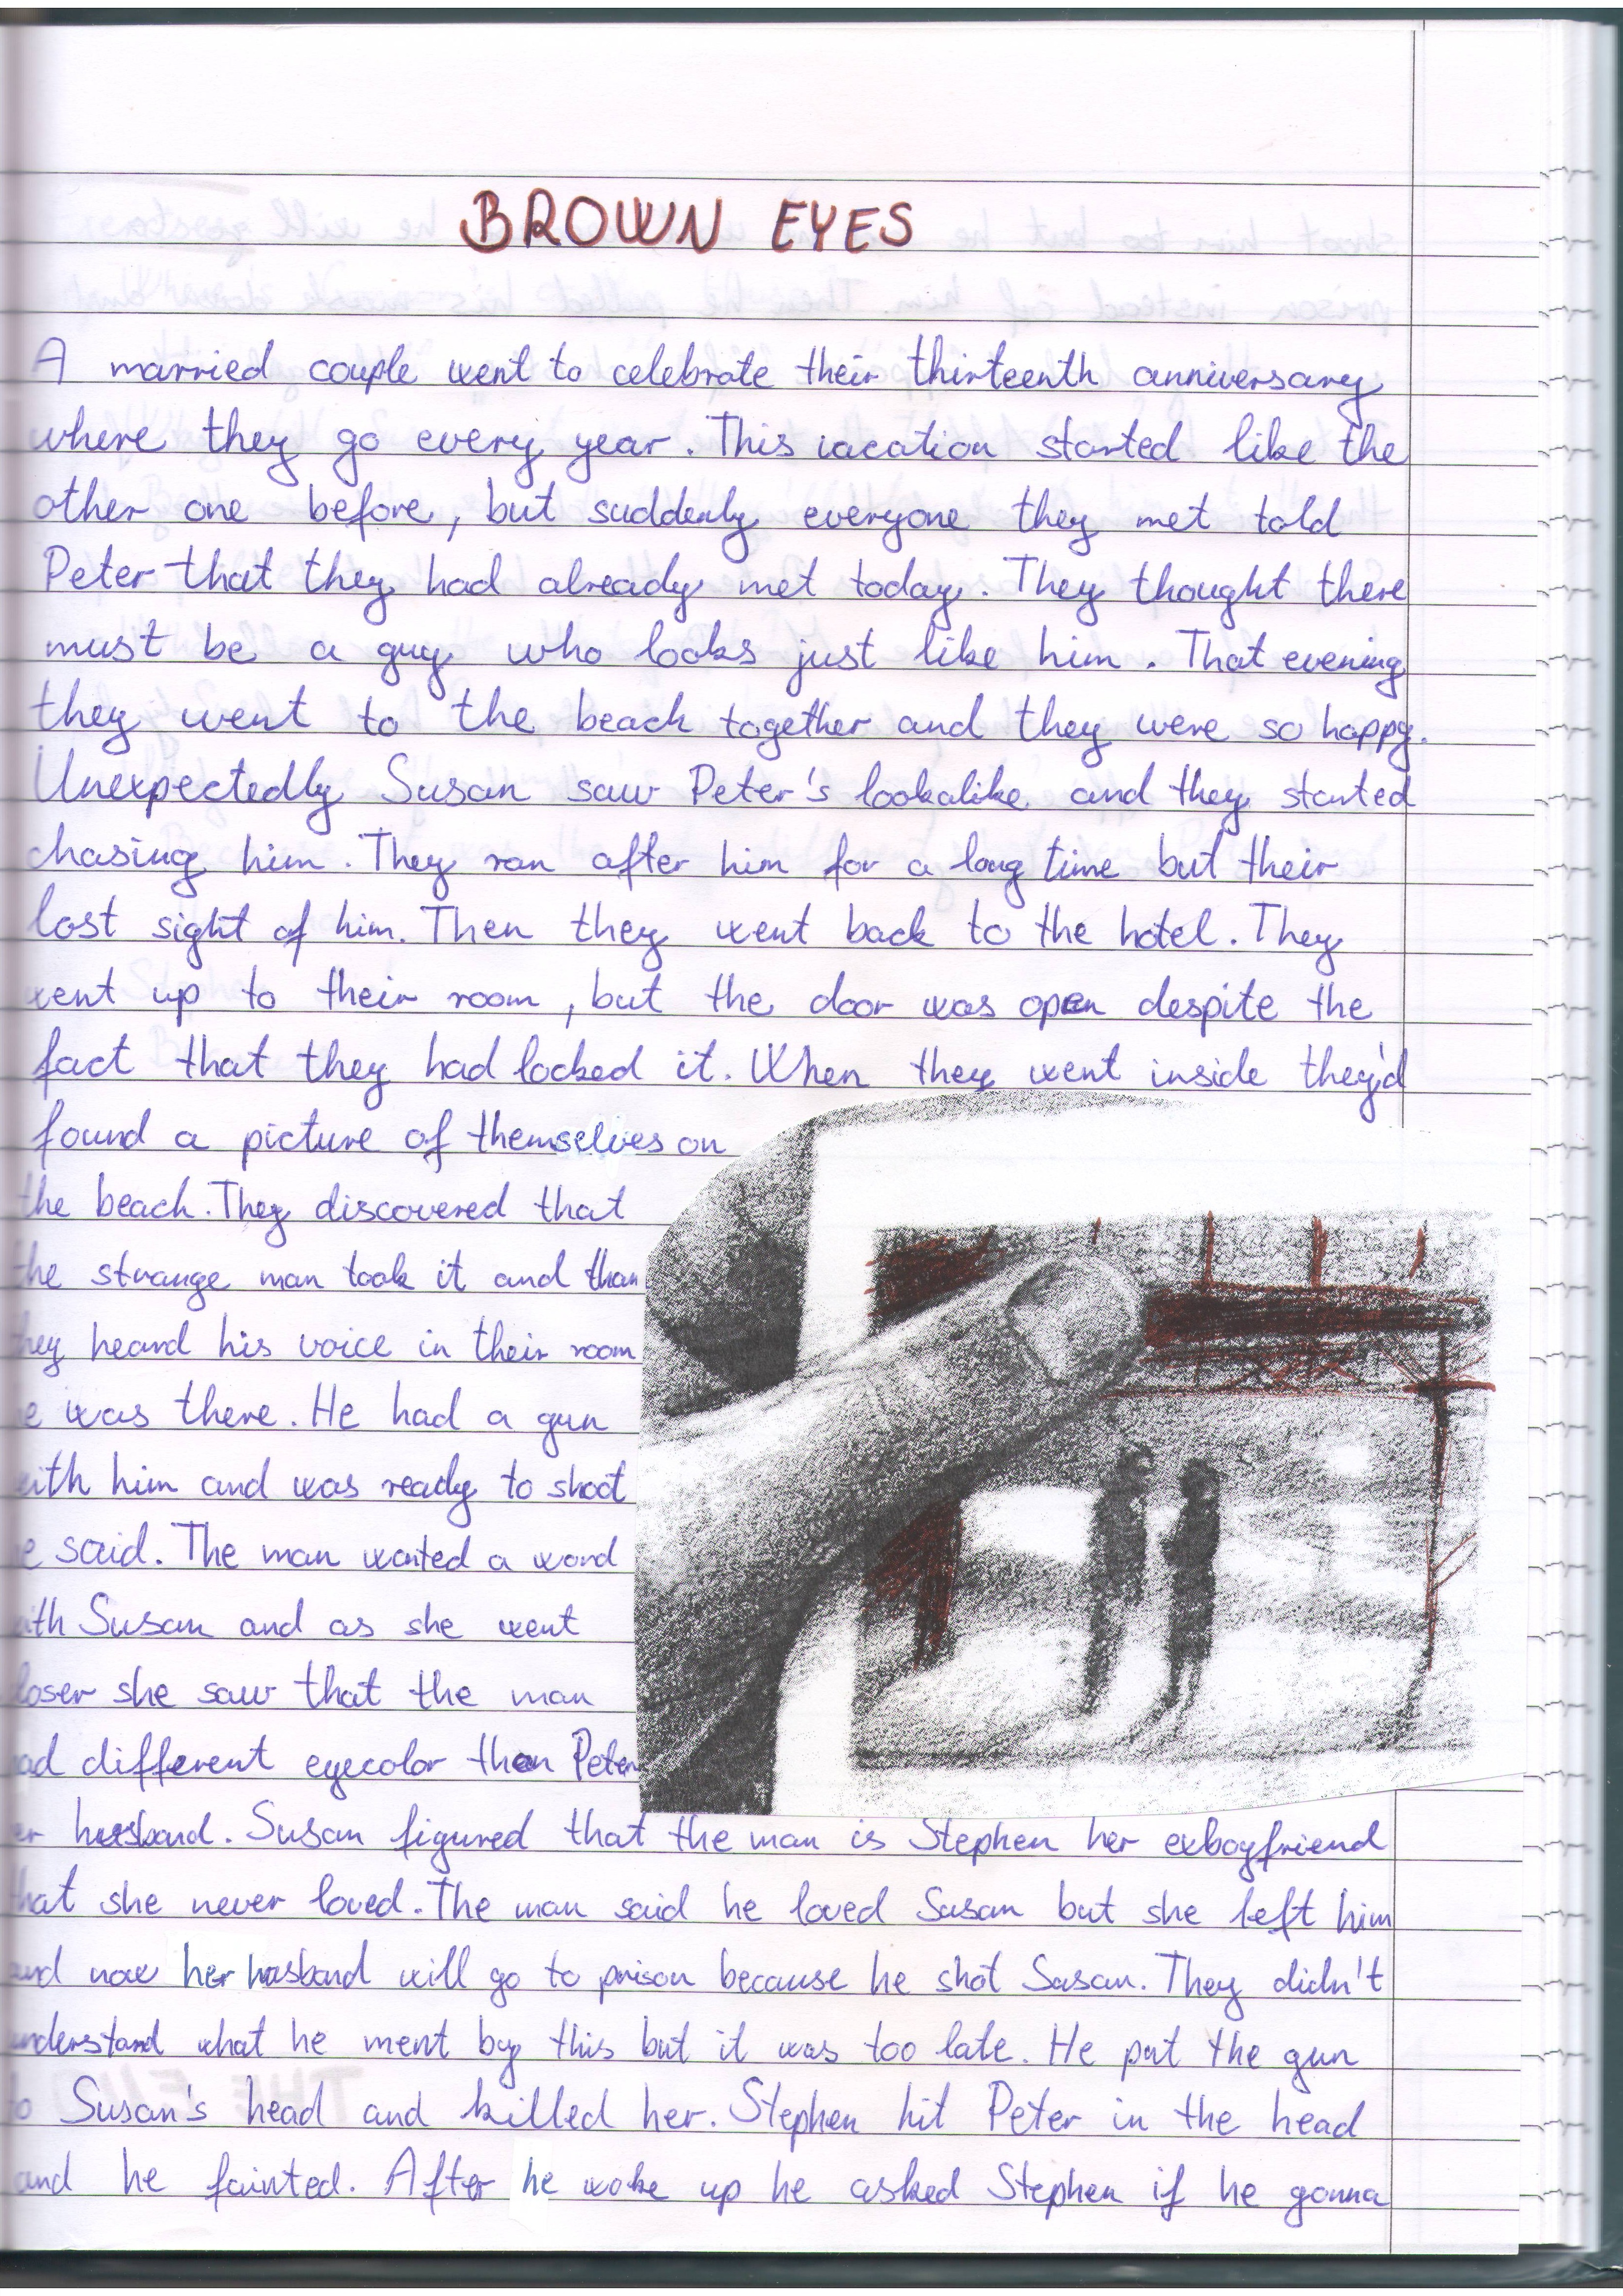 BROWN EYES
A married couple went to celebrate their thirteenth anniversary
where they go every year. This vacation started like the
other one before, but suddenly everyone they met told
Peter that they had already met today. They thought there
must be a guy who looks just like him. That evening
they went to the beach together and they were so happy.
Unexpectedly Susan saw Peter's lookalike and they started
chasing him. They ran after him for a long time but their
lost sight of him. Then they went back to the hotel. They
went up to their room, but the door was open despite the
fact that they had locked it. When they went inside they'd
found a picture of themselves on
the beach. They discovered that
the strange man took it and than
they heard his voice in their room
e was there. He had a gun
with him and was ready to shoot
e said. The man wanted a word
ith Susan and as she went
loser she saw that the man
ad different eyecolor than Peter
er husband. Susan figured that the man is Stephen her exboyfriend
that she never loved. The man said he loved Susan but she left him
and now her husband will go to prison because he shot Susan. They didn't
understand what he ment by this but it was too late. He put the gun
to Susan's head and killed her. Stephen hit Peter in the head
and he fainted. After he woke up he asked Stephen if he gonna